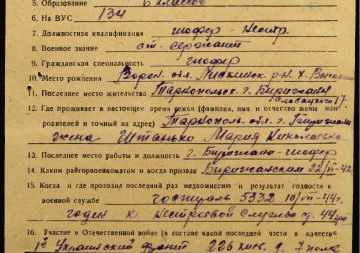 5. Образование 6 классов
6. № ВУС 134
7. Должностная квалификация шофер
8. Военное звание ст. сержант
9. Гражданская специальность шофер
10. Место рождения Ворон. обл. Лискинск. р-н. х.
11. Последнее место жительства Тарнопольск. г. Бережаны
12. Где проживает в настоящее время семья (фамилия, имя и отчество жены или
родителей и точный их адрес) Тарнополь. обл. г.
жена Штанько Мария Николаевна
13. Последнее место работы и должность г. Бережаны шофер
14. Каким райгорвоенкоматом и когда призван Бережанским 22/VI-42г
15. Когда и где проходил последний раз медкомиссию и результат годности к
военной службе госпиталь 5332 10/VII-44г.
годен к нестроевой службе 44
16. Участие в Отечественной войне (в составе какой последней части и в качестве
1й Украинский фронт 226 д. 7 полк